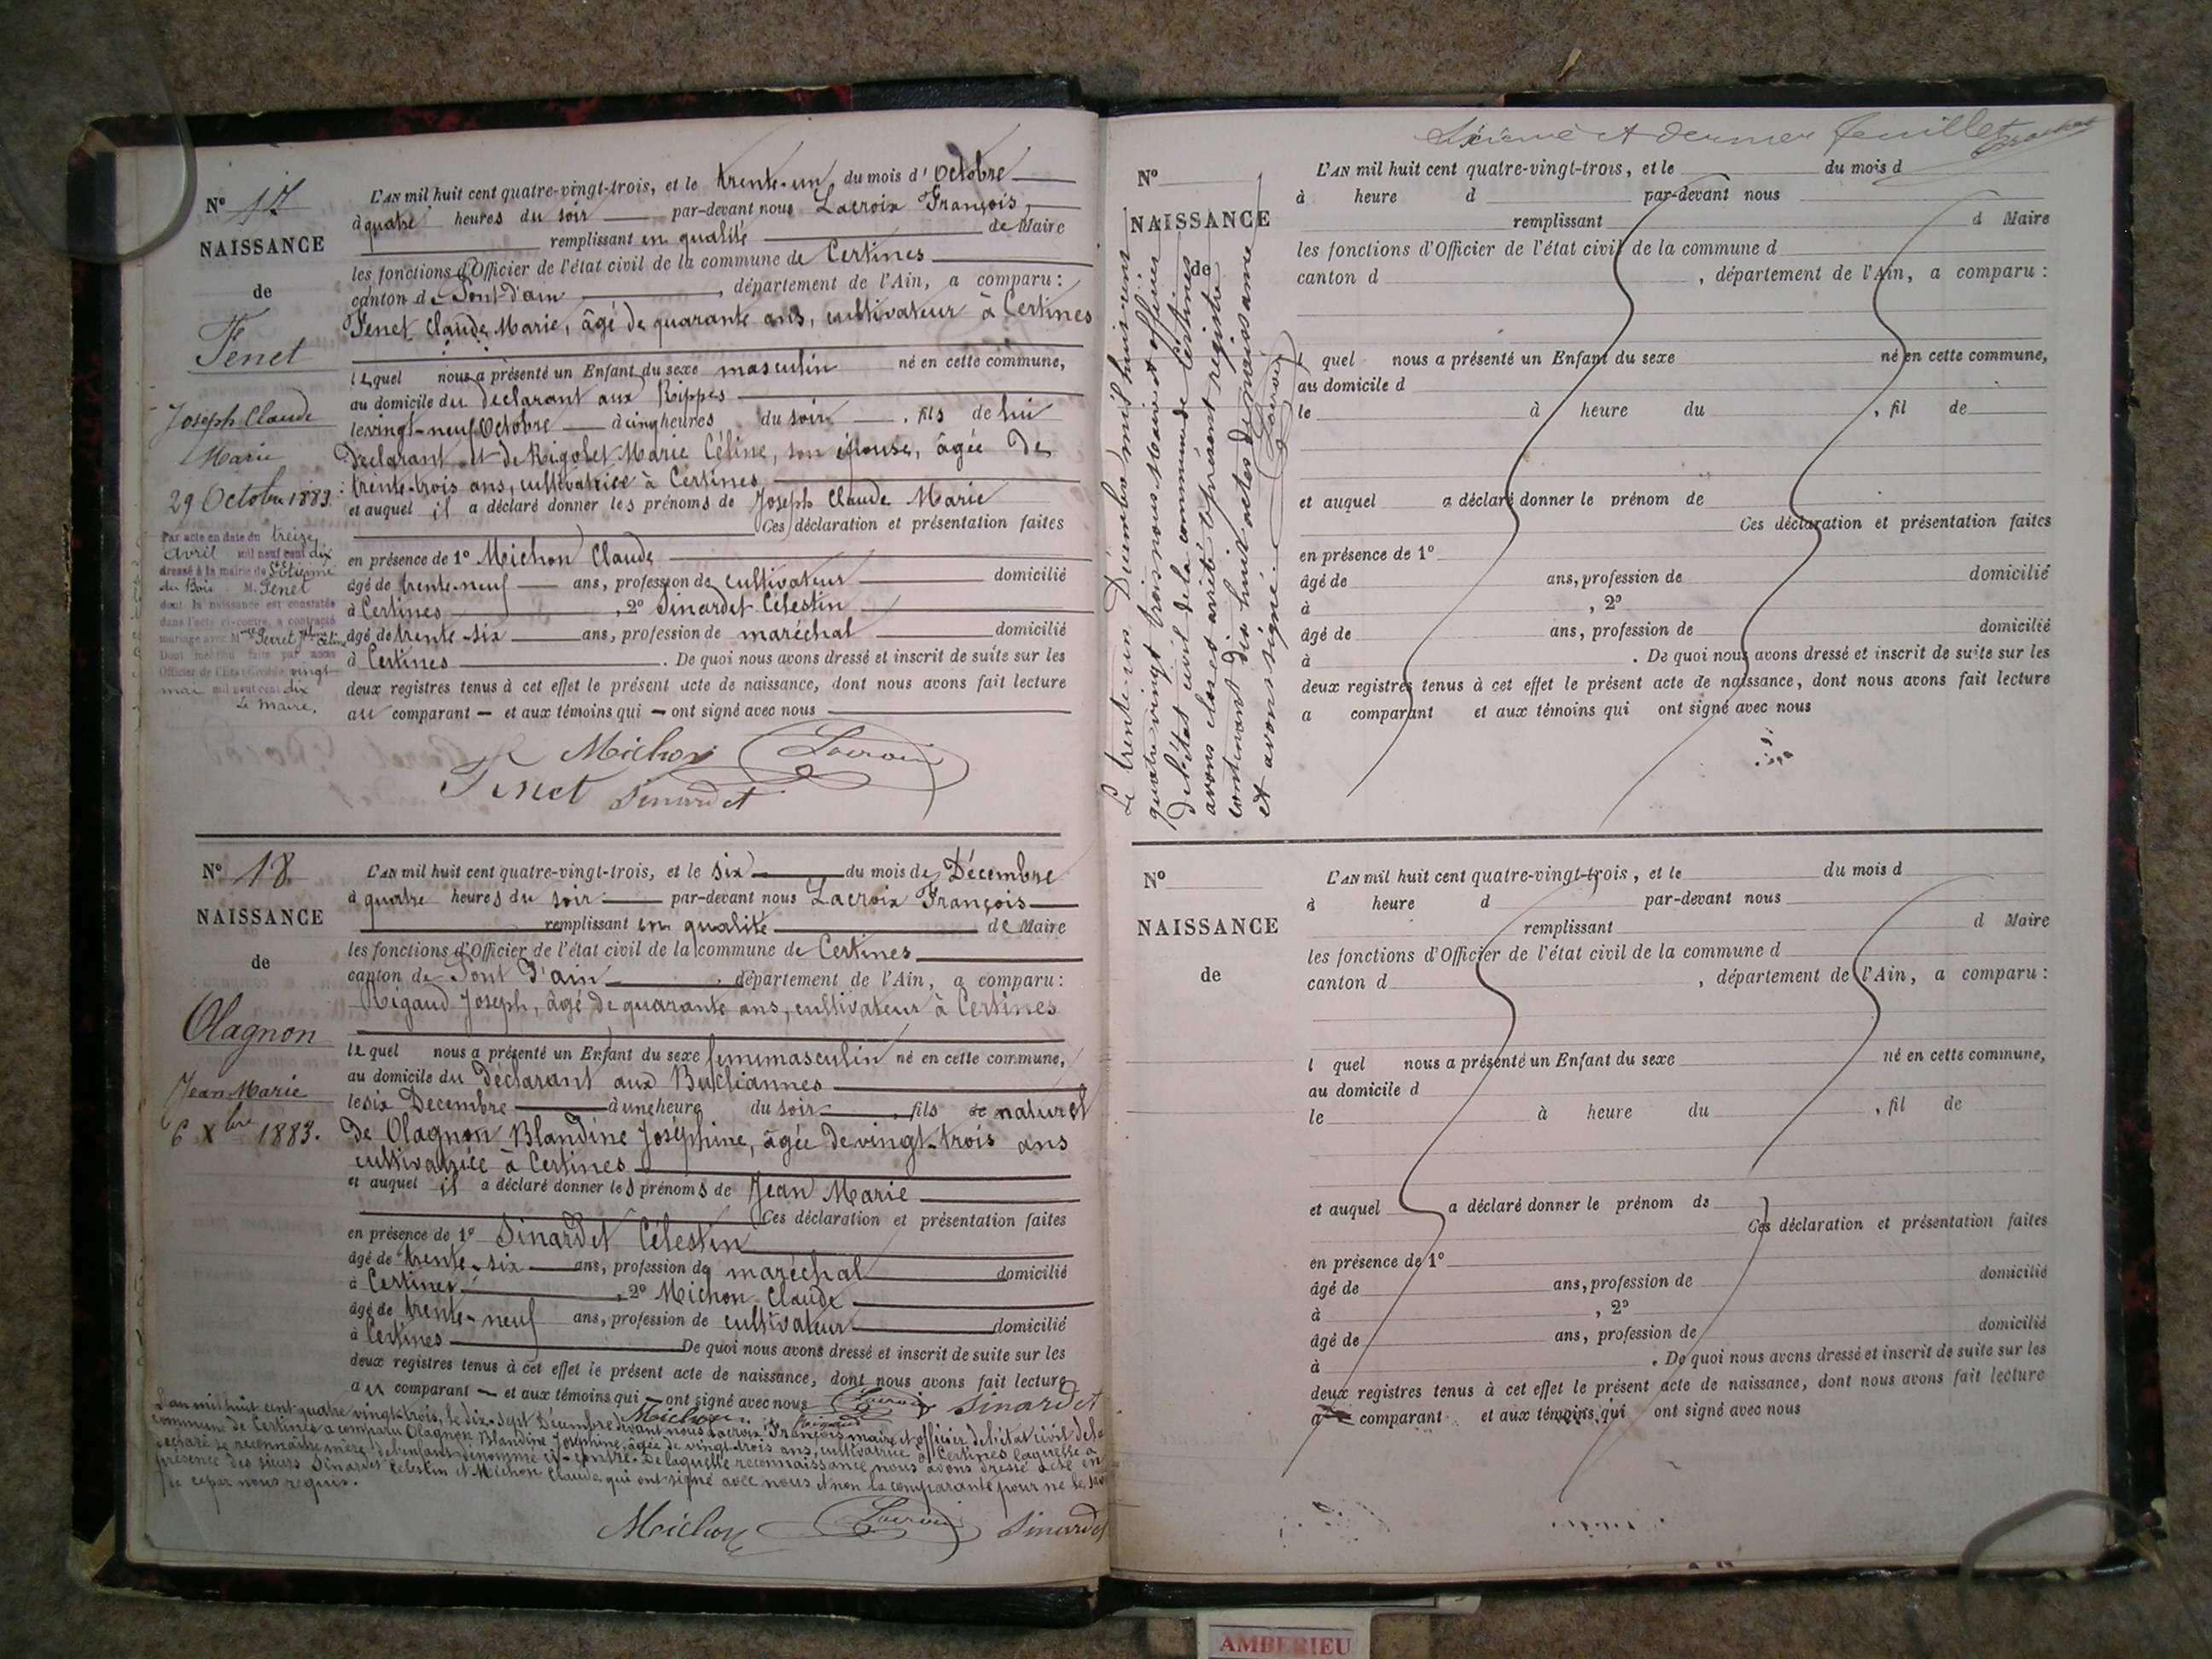 Nº 17
NAISSANCE
de
Tenet
Joseph Claude
Marie
29 Octobre 1883.
Par acte en date du treize
avril mil neuf cent dix
dressé à la mairie de St Etienne
du Bois M. Tenet
dont la naissance est constatée
dans l'acte ci-contre, a contracté
mariage avec Melle Perret
Dont mention faite par nous
Officier de l'Etat-Civil le vingt
mai mil neuf cent dix
Le Maire,
L'AN mil huit cent quatre-vingt-trois, et le trente-un du mois d'Octobre
à quatre heures du soir par-devant nous Lacroix François,
remplissant en qualité de Maire
les fonctions d'Officier de l'état civil de la commune de Certines
canton de Pont-d'ain, département de l'Ain, a comparu :
Tenet Claude Marie, âgé de quarante ans, cultivateur à Certines
lequel nous a présenté un Enfant du sexe masculin né en cette commune,
au domicile du déclarant aux Rippes
le vingt-neuf Octobre à cinq heures du soir, fils de lui
Déclarant et de Rigolet Marie Céline, son épouse, âgée de
trente-trois ans, cultivatrice à Certines
et auquel il a déclaré donner les prénoms de Joseph Claude Marie
Ces déclaration et présentation faites
en présence de 1º Michon Claude
âgé de trente-neuf ans, profession de cultivateur domicilié
à Certines, 2º Sinardet Célestin
âgé de trente-six ans, profession de maréchal domicilié
à Certines. De quoi nous avons dressé et inscrit de suite sur les
deux registres tenus à cet effet le présent acte de naissance, dont nous avons fait lecture
au comparant — et aux témoins qui — ont signé avec nous
Michon Lacroix
Tenet Sinardet
Nº 18
NAISSANCE
de
Olagnon
Jean Marie
6 Xbre 1883.
L'AN mil huit cent quatre-vingt-trois, et le six du mois de Décembre
à quatre heures du soir par-devant nous Lacroix François
remplissant en qualité de Maire
les fonctions d'Officier de l'état civil de la commune de Certines
canton de Pont d'ain, département de l'Ain, a comparu :
Rigaud Joseph, âgé de quarante ans, cultivateur à Certines
lequel nous a présenté un Enfant du sexe femimasculin né en cette commune,
au domicile du déclarant aux Buchiannes
le six Décembre à une heure du soir, fils de naturel
de Olagnon Blandine Joséphine, âgée de vingt-trois ans
cultivatrice à Certines
et auquel il a déclaré donner les prénoms de Jean Marie
Ces déclaration et présentation faites
en présence de 1º Sinardet Célestin
âgé de trente-six ans, profession de maréchal domicilié
à Certines, 2º Michon Claude
âgé de trente-neuf ans, profession de cultivateur domicilié
à Certines De quoi nous avons dressé et inscrit de suite sur les
deux registres tenus à cet effet le présent acte de naissance, dont nous avons fait lecture
au comparant — et aux témoins qui — ont signé avec nous Lacroix Sinardet
Michon Rigaud
L'an mil huit cent quatre vingt-trois, le dix-sept Décembre devant nous Lacroix François maire et officier de l'état civil de la
commune de Certines a comparu Olagnon Blandine Joséphine, âgée de vingt-trois ans, cultivatrice à Certines laquelle a
déclaré se reconnaître mère de l'enfant dénommé ci-contre. De laquelle reconnaissance nous avons dressé acte en
présence des sieurs Sinardet Célestin et Michon Claude qui ont signé avec nous et non la comparante pour ne le savoir
de ce par nous requis.
Michon Lacroix Sinardet
Sixième et dernier feuillet
Nº
NAISSANCE
de
Le trente-un Décembre mil huit cent
quatre vingt trois nous Maire et officier
de l'état civil de la commune de Certines
avons clos et arrêté le présent registre
contenant dix huit actes de naissance
et avons signé. Lacroix
L'AN mil huit cent quatre-vingt-trois, et le du mois d
à heure d par-devant nous
remplissant d Maire
les fonctions d'Officier de l'état civil de la commune d
canton d , département de l'Ain, a comparu :
l quel nous a présenté un Enfant du sexe né en cette commune,
au domicile d
le à heure du , fil de
et auquel a déclaré donner le prénom de
Ces déclaration et présentation faites
en présence de 1º
âgé de ans, profession de domicilié
à , 2º
âgé de ans, profession de domicilié
à . De quoi nous avons dressé et inscrit de suite sur les
deux registres tenus à cet effet le présent acte de naissance, dont nous avons fait lecture
a comparant et aux témoins qui ont signé avec nous
Nº
NAISSANCE
de
L'AN mil huit cent quatre-vingt-trois, et le du mois d
à heure d par-devant nous
remplissant d Maire
les fonctions d'Officier de l'état civil de la commune d
canton d , département de l'Ain, a comparu :
l quel nous a présenté un Enfant du sexe né en cette commune,
au domicile d
le à heure du , fil de
et auquel a déclaré donner le prénom de
Ces déclaration et présentation faites
en présence de 1º
âgé de ans, profession de domicilié
à , 2º
âgé de ans, profession de domicilié
à . De quoi nous avons dressé et inscrit de suite sur les
deux registres tenus à cet effet le présent acte de naissance, dont nous avons fait lecture
a comparant et aux témoins qui ont signé avec nous
AMBERIEU